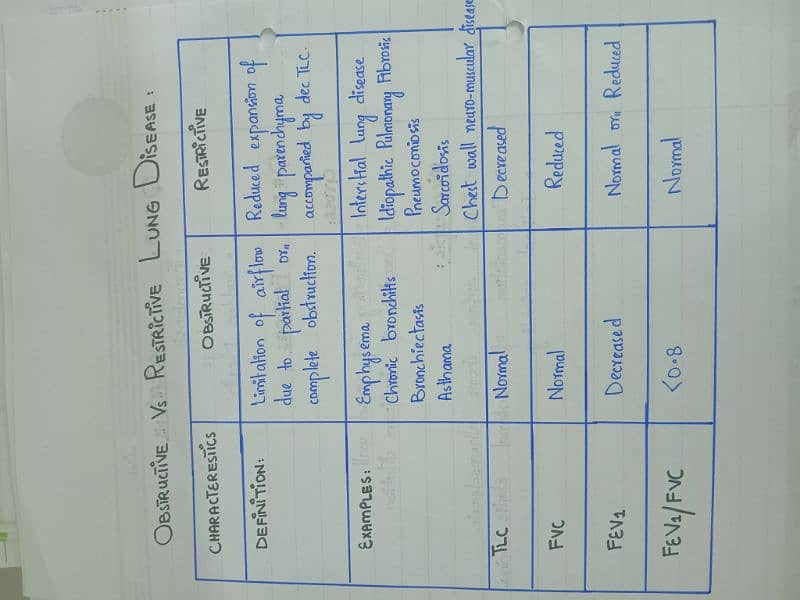 OBSTRUCTIVE Vs RESTRICTIVE LUNG DISEASE :
CHARACTERESTICS OBSTRUCTIVE RESTRICTIVE
DEFINITION: Limitation of airflow Reduced expansion of
due to partial or lung parenchyma
complete obstruction. accompanied by dec TLC.
EXAMPLES: Emphysema Interstial lung disease
Chronic bronchitis Idiopathic Pulmonary Fibrosis
Bronchiectasis Pneumoconiosis
Asthama Sarcoidosis
Chest wall neuro-muscular disease
TLC Normal Decreased
FVC Normal Reduced
FEV1 Decreased Normal or Reduced
FEV1/FVC <0.8 Normal